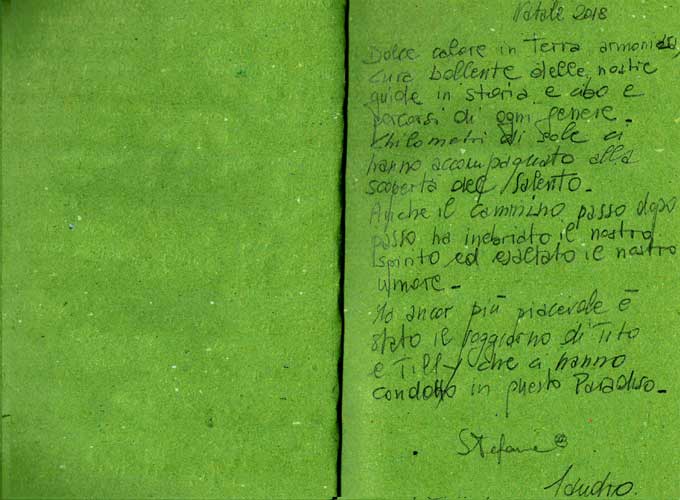 Natale 2018
Dolce calore in Terra armoniosa,
cura bollente delle nostre
guide in storia e cibo e
percorsi di ogni genere.
Chilometri di sole ci
hanno accompagnato alla
scoperta del Salento.
Anche il cammino passo dopo
passo ha inebriato il nostro
spirito ed esaltato il nostro
umore.
Ma ancor più piacevole è
stato il soggiorno di Tito
e Tilly che ci hanno
condotto in questo Paradiso.
Stefania